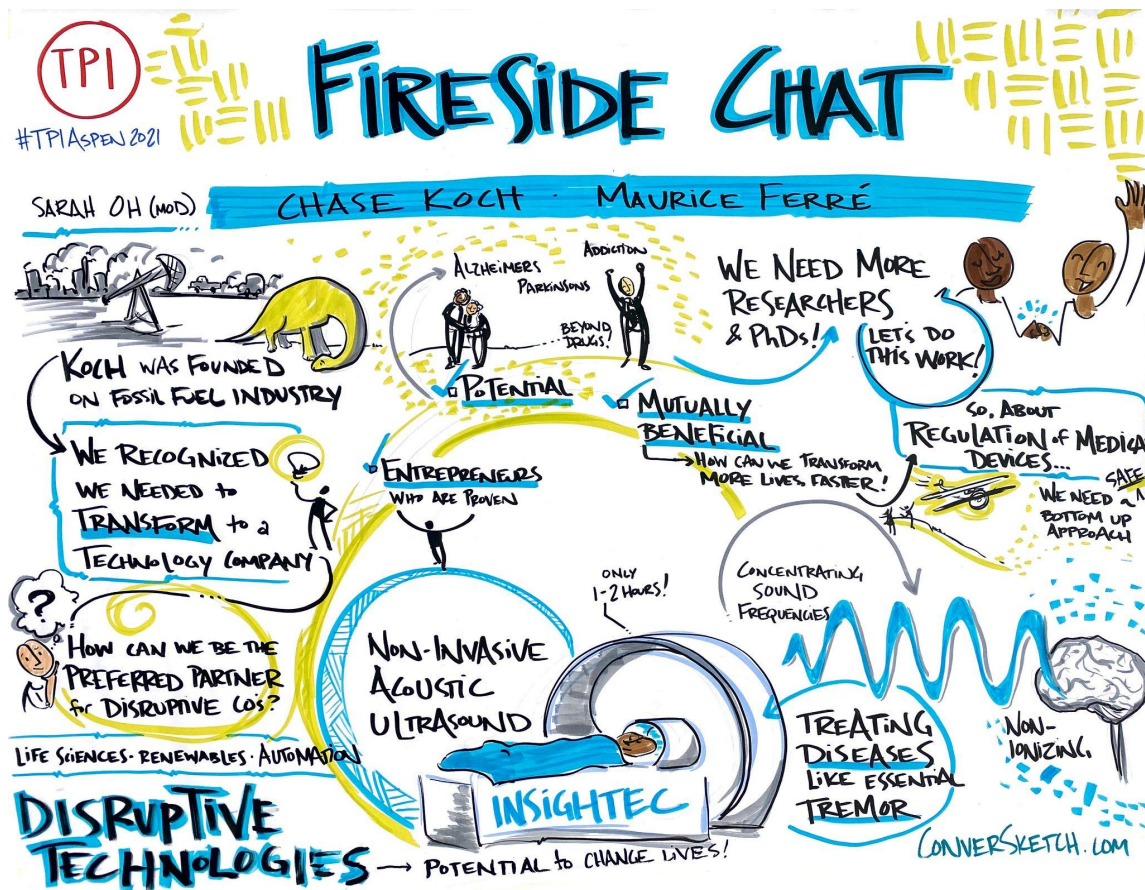 TPI
#TPIASPEN2021
FIRESIDE CHAT
SARAH OH (MOD)
CHASE KOCH · MAURICE FERRÉ
KOCH WAS FOUNDED
ON FOSSIL FUEL INDUSTRY
WE RECOGNIZED
WE NEEDED to
TRANSFORM to a
TECHNOLOGY COMPANY
?
HOW CAN WE BE THE
PREFERRED PARTNER
for DISRUPTIVE CO'S?
LIFE SCIENCES · RENEWABLES · AUTOMATION
DISRUPTIVE
TECHNOLOGIES → POTENTIAL to CHANGE LIVES!
ALZHEIMERS
PARKINSONS
ADDICTION
BEYOND
DRUGS!
POTENTIAL
MUTUALLY
BENEFICIAL
HOW CAN WE TRANSFORM
MORE LIVES, FASTER!
ENTREPRENEURS
WHO ARE PROVEN
NON-INVASIVE
ACOUSTIC
ULTRASOUND
ONLY
1-2 HOURS!
INSIGHTEC
WE NEED MORE
RESEARCHERS
& PhDs!
LET'S DO
THIS WORK!
SO, ABOUT
REGULATION of MEDICAL
DEVICES...
SAFE
WE NEED a
BOTTOM UP
APPROACH
CONCENTRATING
SOUND
FREQUENCIES
TREATING
DISEASES
LIKE ESSENTIAL
TREMOR
NON-
IONIZING
CONVERSKETCH.COM